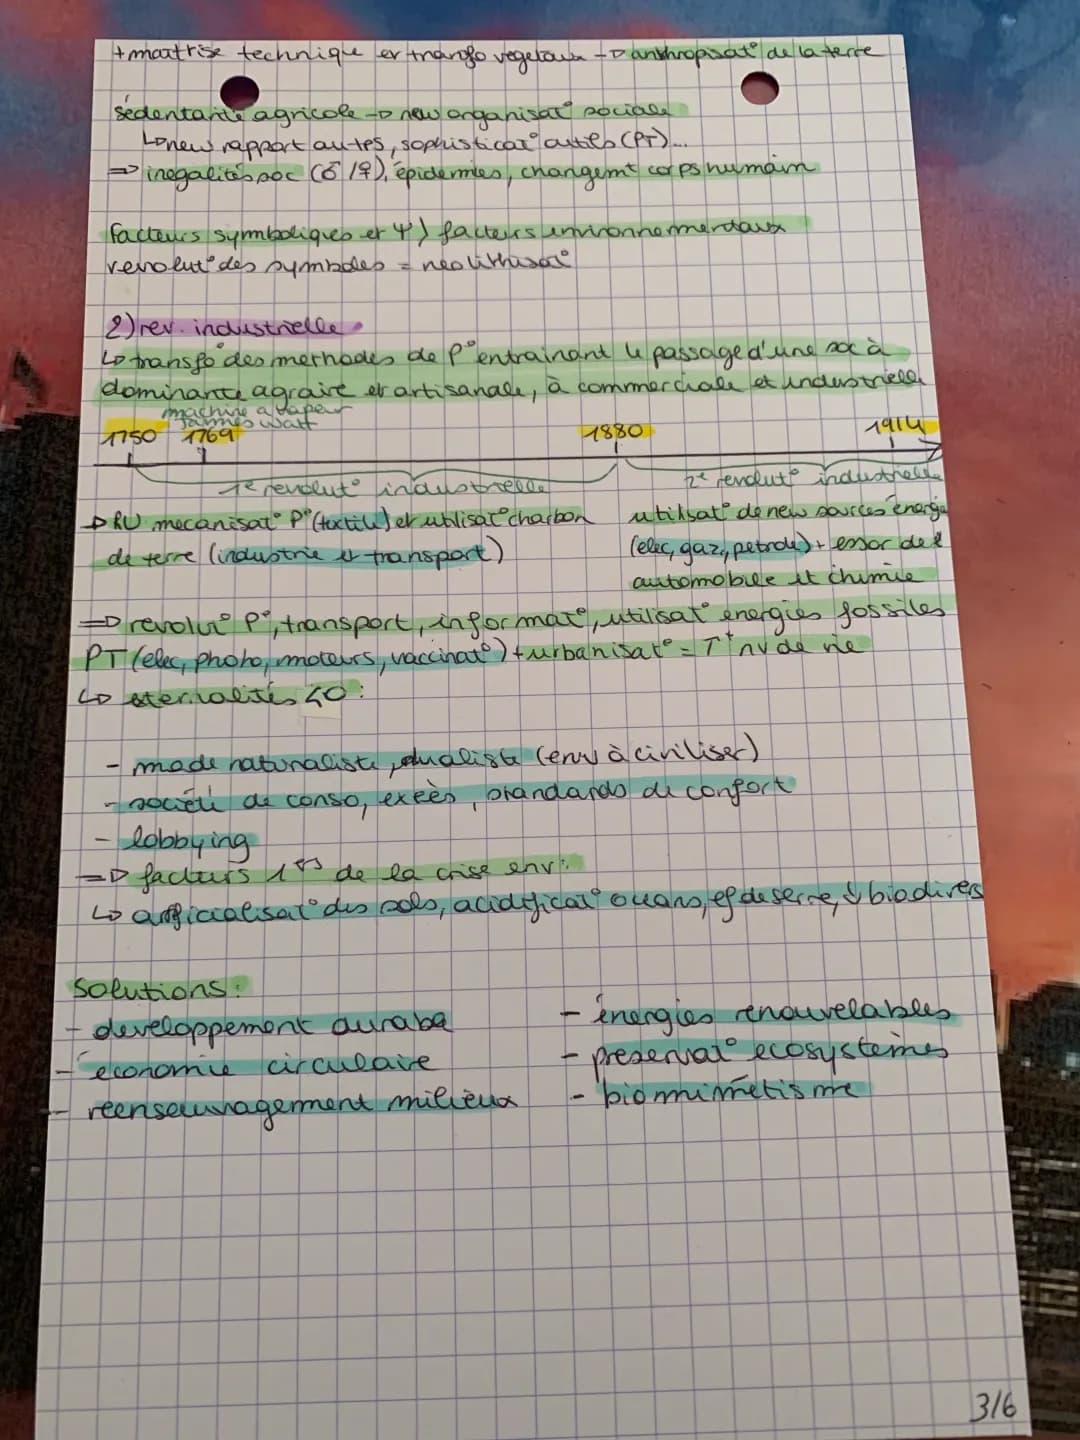 + maitrise technique et transfo vegetaux → anthropisat° de la terre
sédentarité agricole → new organisat° sociale
↳ new rapport autres, sophisticat° outils (PT)...
⇒ inégalités soc (♂/♀), épidémies, changemt corps humain
facteurs symboliques et Ψ ) facteurs environnementaux
revolut° des symboles = neolithisat°
2) rev. industrielle
↳ transfo des methodes de P° entrainant le passage d'une soc à
dominante agraire et artisanale, à commerciale et industrielle
machine a vapeur
James Watt
1750 1769 1880 1914
1e revolut° industrielle 2e revolut° industrielle
→ RU mecanisat° P° (textile) et utilisat° charbon
de terre (industrie et transport)
utilisat° de new sources énergie
(elec, gaz, petrole) + essor de l
automobile et chimie
⇒ revolut° P°, transport, informat°, utilisat° energies fossiles
PT (elec, photo, moteurs, vaccinat°) + urbanisat° = T+ nv de vie
↳ externalités <0 :
- mode naturaliste, dualiste (env à civiliser)
- société de conso, excès, standards de confort
- lobbying
⇒ facteurs 1ers de la crise env :
↳ artificialisat° des sols, acidificat° oceans, ef de serre, ↓ biodivers
Solutions :
- developpement durable
- économie circulaire
- réensauvagement milieux
- énergies renouvelables
- préservat° ecosystemes
- biomimétisme
3/6